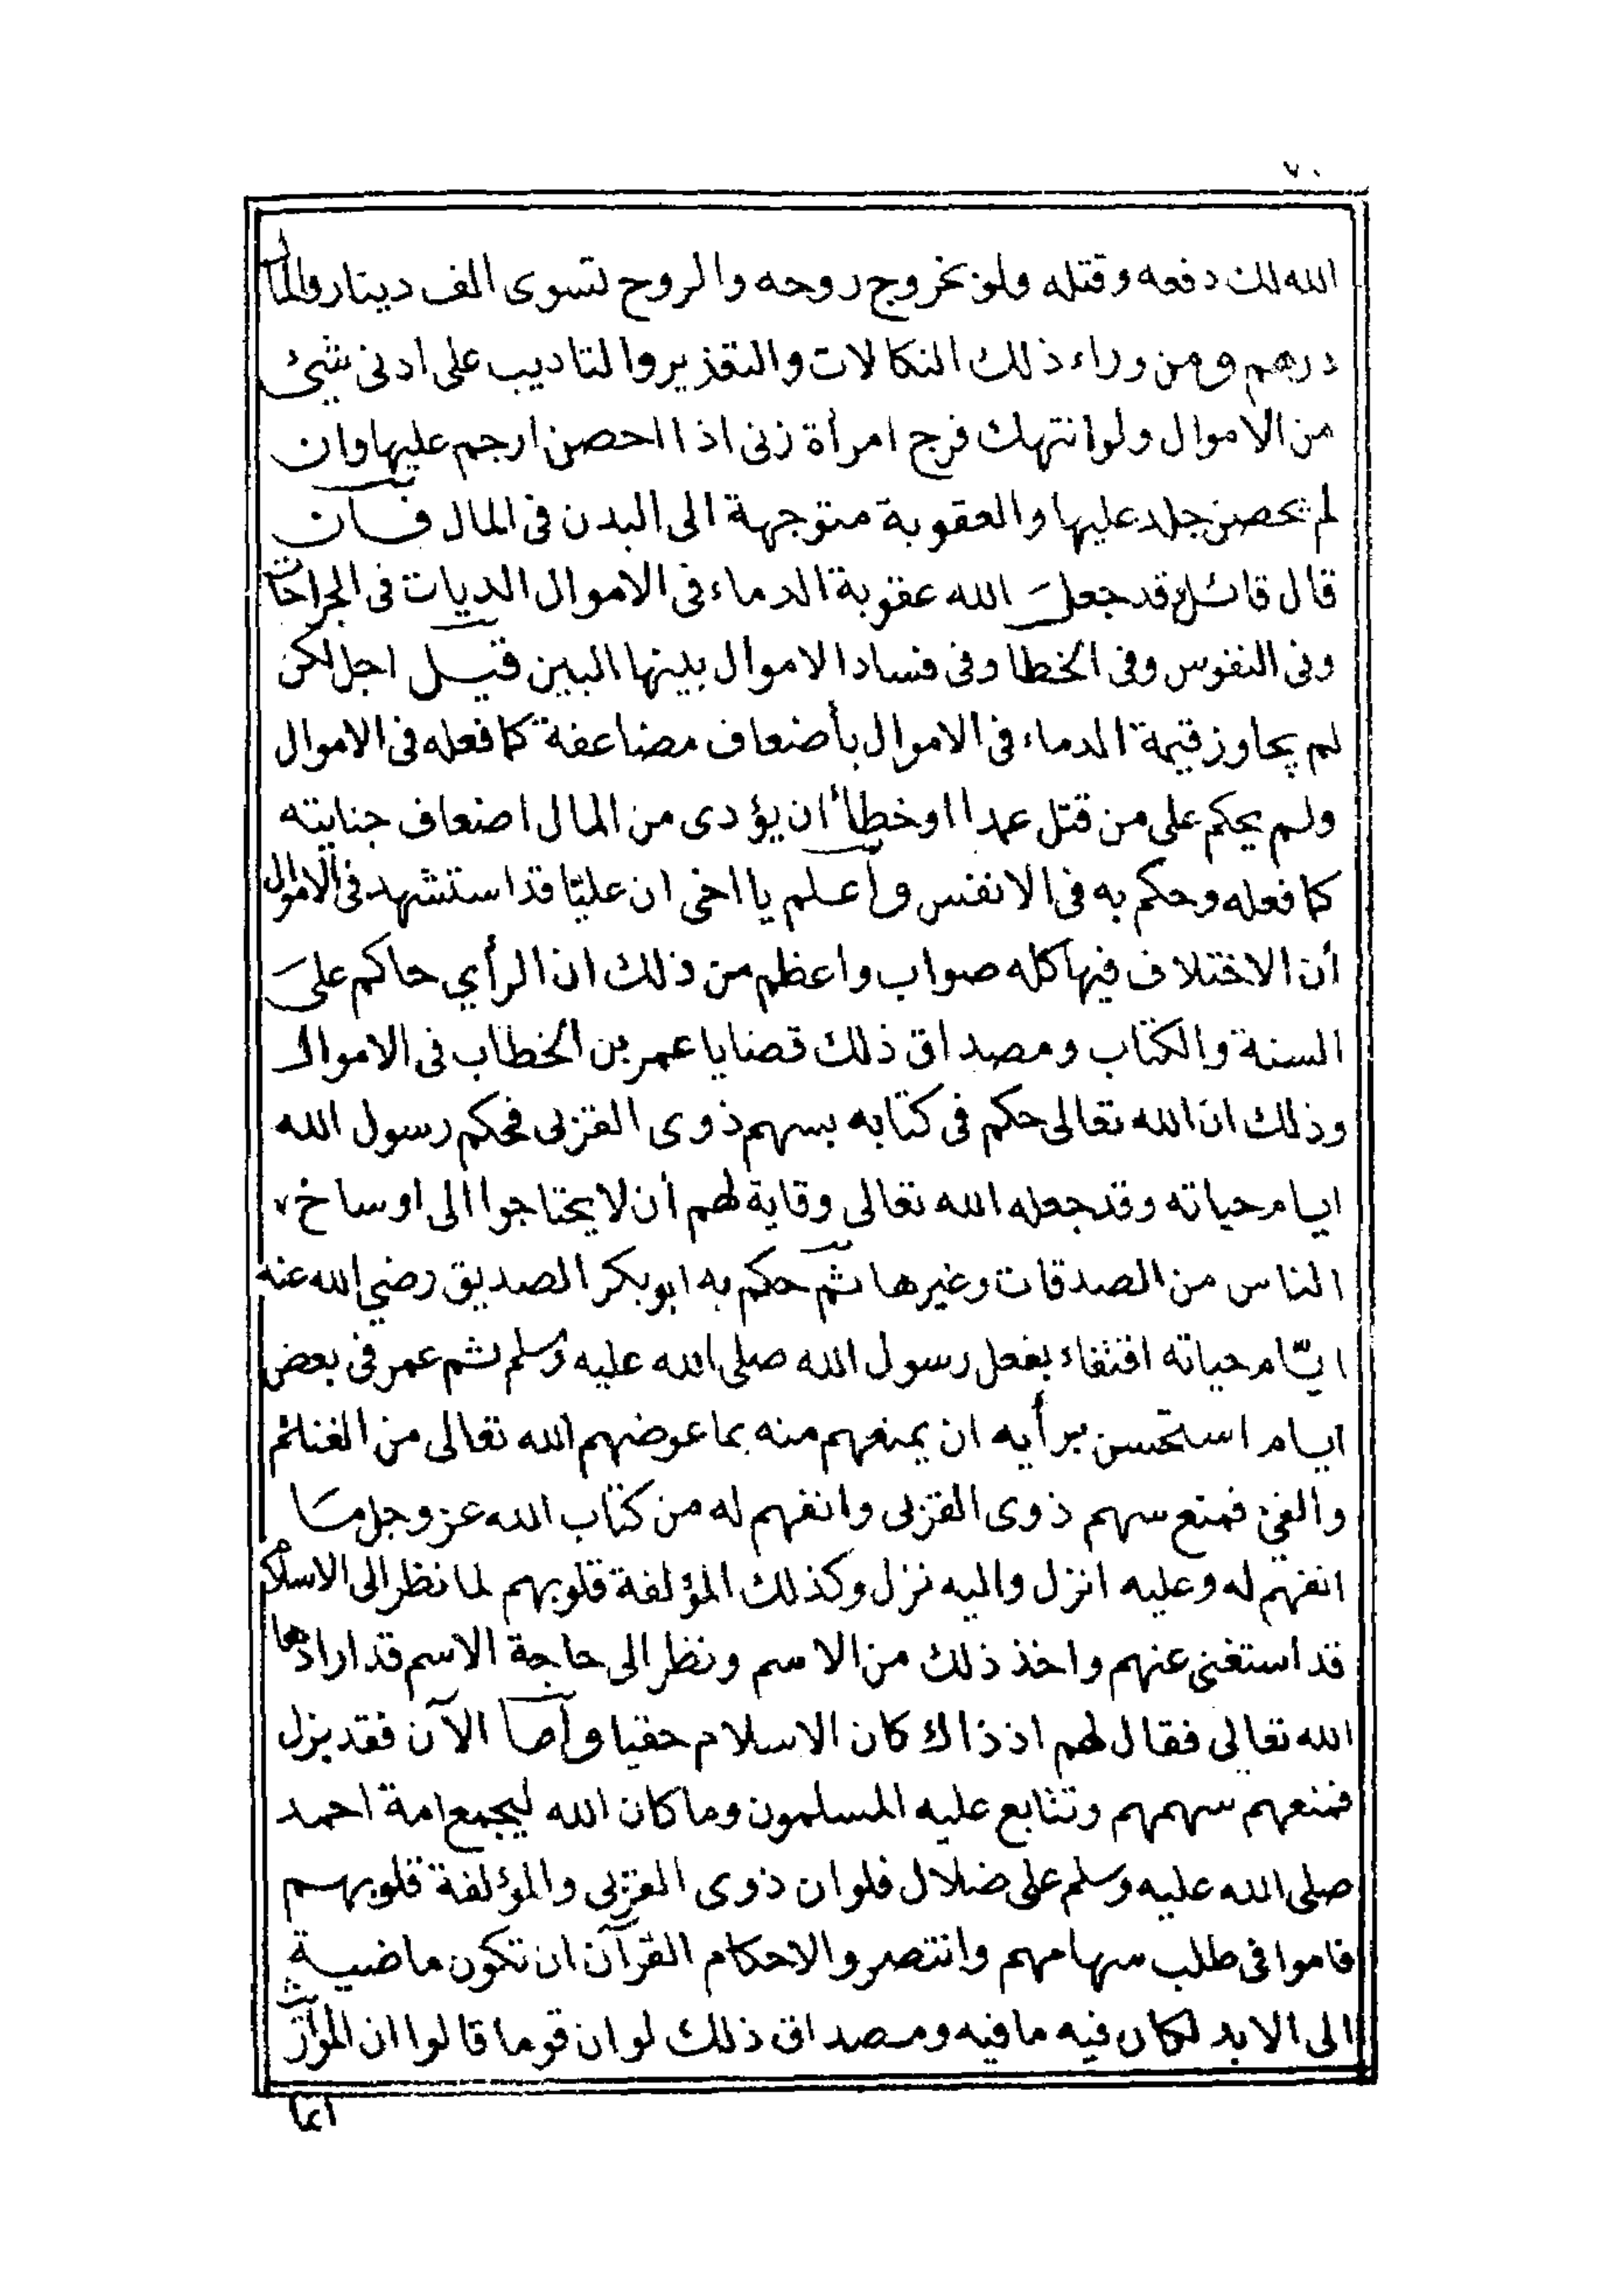 ٧٠
الله لك دفعه وقتله ولو بخروج روحه والروح تسوى الف دينار والمال
درهم ومن وراء ذلك النكالات والتقذير والتاديب على ادنى شئ
من الاموال ولو انتهك فرج امرأة زنى اذا احصن ارجم عليها وان
لم تحصن جلد عليها والعقوبة متوجهة الى البدن فى المال فان
قال قائل وقد جعل الله عقوبة الدماء فى الاموال الديات فى الجراحات
وفى النفوس وفى الخطا وفى فساد الاموال بينها البين قيل اجل لكن
لم يجاوز قيمة الدماء فى الاموال بأضعاف مضاعفة كما فعله فى الاموال
ولم يحكم على من قتل عمدا او خطأ ان يؤدى من المال اضعاف جنايته
كما فعله وحكم به فى الانفس وأعلم يا اخى ان عليّا قد استشهد فى الاموال
أن الاختلاف فيها كله صواب واعظم من ذلك ان الرأي حاكم على
السنة والكتاب ومصداق ذلك قضايا عمر بن الخطاب فى الاموال
وذلك ان الله تعالى حكم فى كتابه بسهم ذوى القربى فحكم رسول الله
ايام حياته وقد جعله الله تعالى وقاية لهم أن لا يحتاجوا الى اوساخ
الناس من الصدقات وغيرها ثم حكم به ابو بكر الصديق رضي الله عنه
ايّام حياته اقتفاء بفعل رسول الله صلى الله عليه وسلم ثم عمر فى بعض
ايام استحسن برأيه ان يمنعهم منه بما عوضهم الله تعالى من الغنائم
والفئ فمنع سهم ذوى القربى وانفهم له من كتاب الله عز وجل ما
انفهم له وعليه انزل واليه نزل وكذلك المؤلفة قلوبهم لما نظر الى الاسلام
قد استغنى عنهم واخذ ذلك من الاسم ونظر الى حاجة الاسم قد ارادها
الله تعالى فقال لهم اذ ذاك كان الاسلام حقيا وأما الآن فقد بزل
فمنعهم سهمهم وتتابع عليه المسلمون وما كان الله ليجمع امة احمد
صلى الله عليه وسلم على ضلال فلو ان ذوى القربى والمؤلفة قلوبهم
قاموا فى طلب سهامهم وانتصروا لاحكام القرآن ان تكون ماضية
الى الابد لكان فيه ما فيه ومصداق ذلك لو ان قوما قالوا ان الموارث
انما